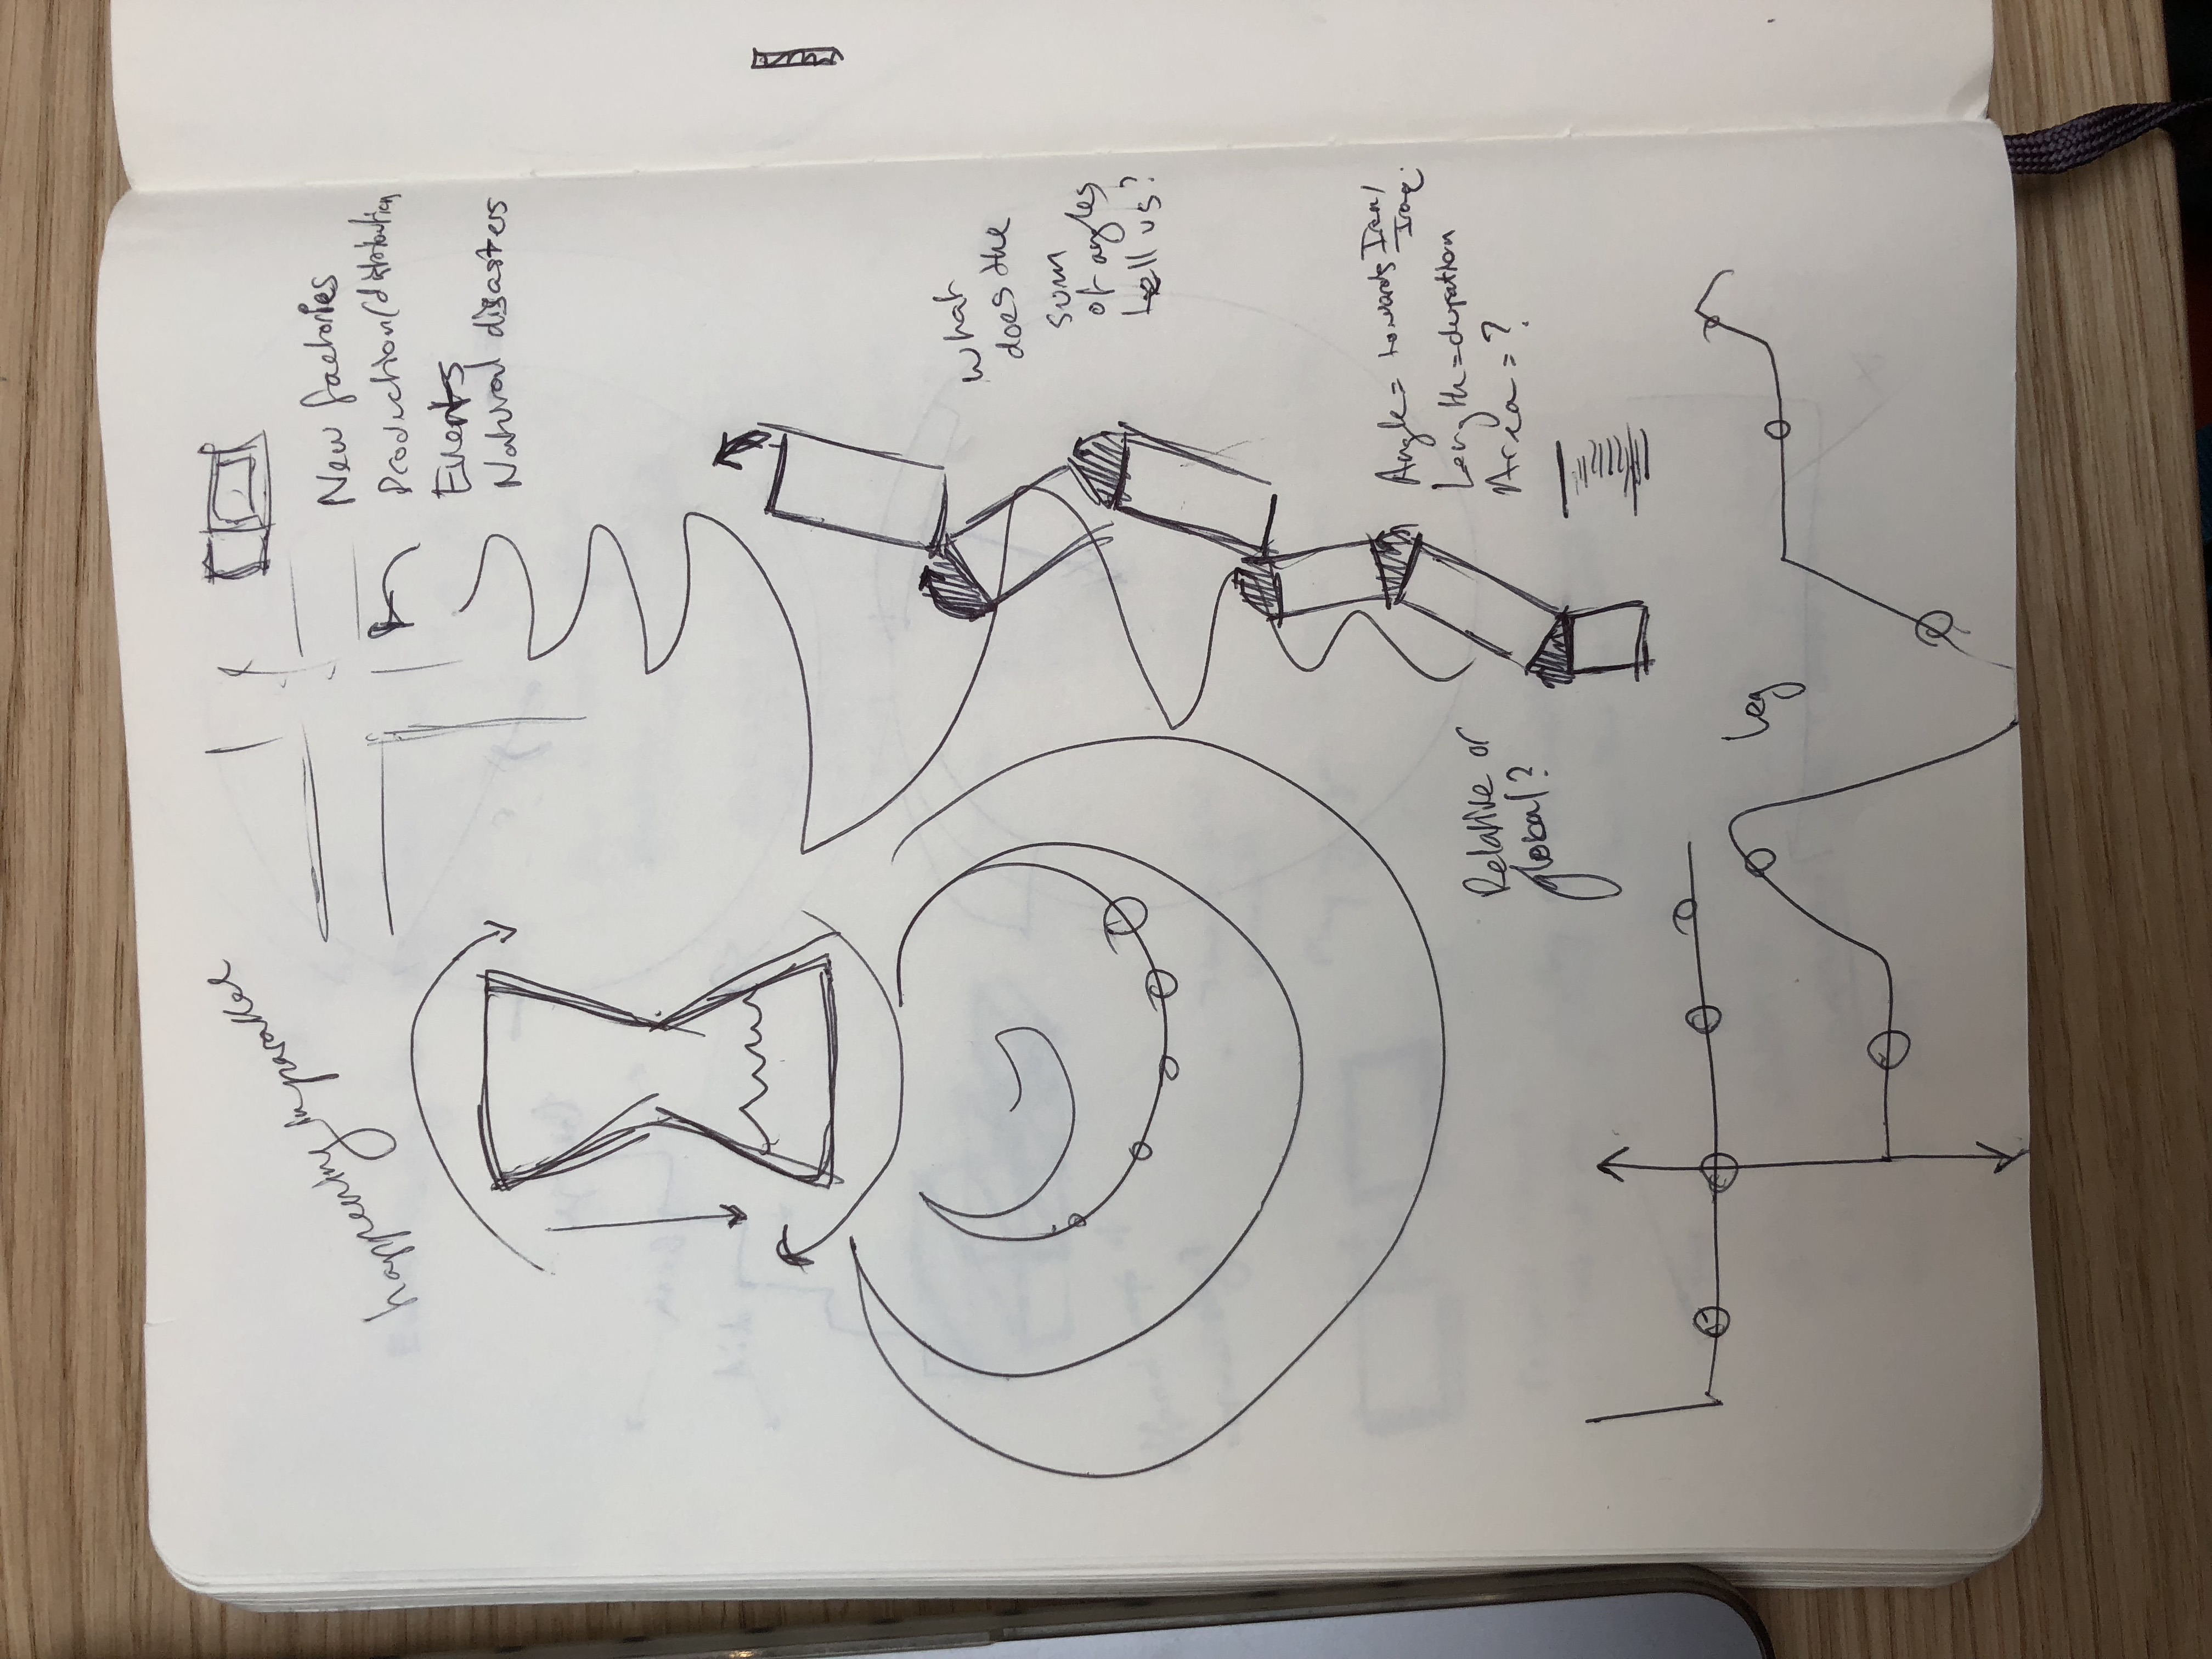 happening in parallel
New factories
Production/distribution
Events
Natural disasters
What
does the
sum
of angles
tell us?
Angle = towards Iran/
Iraq.
Length = duration
Area = ?
Relative or
global?
Leg